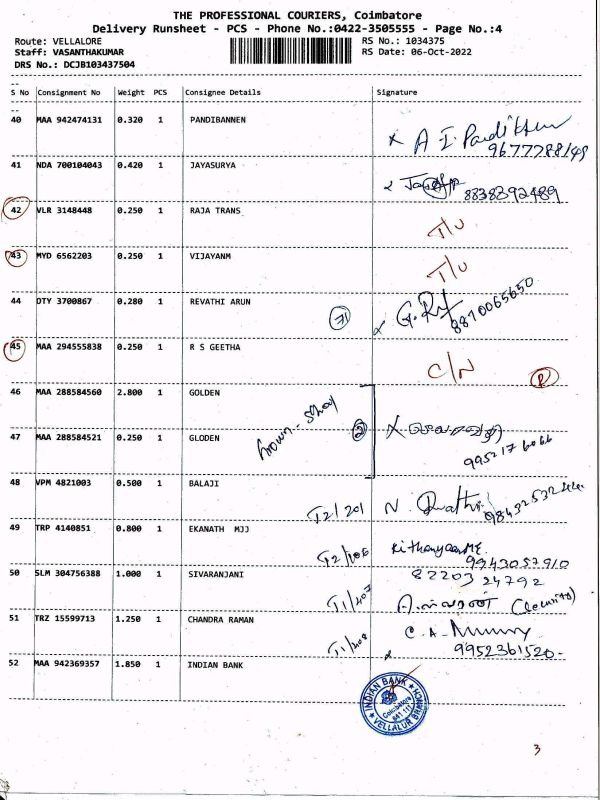 THE PROFESSIONAL COURIERS, Coimbatore
Delivery Runsheet - PCS - Phone No.:0422-3505555 - Page No.:4
Route: VELLALORE RS No.: 1034375
Staff: VASANTHAKUMAR RS Date: 06-Oct-2022
DRS No.: DCJB103437504
S No Consignment No Weight PCS Consignee Details Signature
40 MAA 942474131 0.320 1 PANDIBANNEN
9677788149
41 NDA 700104043 0.420 1 JAYASURYA
8838392489
42 VLR 3148448 0.250 1 RAJA TRANS T/U
43 MYD 6562203 0.250 1 VIJAYANM T/U
44 DTY 3700867 0.280 1 REVATHI ARUN 71
8870065650
45 MAA 294555838 0.250 1 R S GEETHA C/N R
46 MAA 288584560 2.800 1 GOLDEN
47 MAA 288584521 0.250 1 GLODEN 2
9952176066
48 VPM 4821003 0.500 1 BALAJI T2/201
49 TRP 4140851 0.800 1 EKANATH MJJ T2/106
9943057910
50 SLM 304756388 1.000 1 SIVARANJANI T1/407 8220324792
(Security)
51 TRZ 15599713 1.250 1 CHANDRA RAMAN T1/408
9952361520
52 MAA 942369357 1.850 1 INDIAN BANK
INDIAN BANK
Coimbatore
641 111
VELLALUR BRANCH
3